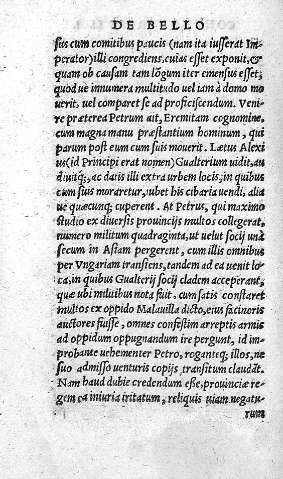 DE BELLO
sius cum comitibus paucis (nam ita iusserat Im⸗
perator) illi congrediens, cuias esset exponit, &
quam ob causam tam lõgum iter emensus esset,
quód ue innumera multitudo uel iam à domo mo
uerit, uel comparet se ad proficiscendum. Veni⸗
re præterea Petrum ait, Eremitam cognomine,
cum magna manu præstantium hominum, qui
parum post eum cum suis mouerit. Lætus Alexi
us (id Principi erat nomen) Gualterium uidit, au
diuitq;, ac daris illi extra urbem locis, in quibus
cum suis moraretur, iubet his cibaria uendi, alia
ue quæcunq; cuperent. At Petrus, qui maximo
studio ex diuersis prouincijs multos collegerat,
numero militum quadraginta, ut uelut socij unà
secum in Asiam pergerent, cum illis omnibus
per Vngariam transiens, tandem ad ea uenit lo
ca, in quibus Gualterij socij cladem acceperant,
quæ ubi militibus nota fuit, cum satis constaret
multos ex oppido Malauilla dicto, eius facinoris
auctores fuisse, omnes confestim arreptis armis
ad oppidum oppugnandum ire pergunt, id im⸗
probante uehementer Petro, roganteq; illos, ne
suo admisso uenturis copijs transitum claudãt.
Nam haud dubie credendum esse, prouinciæ re⸗
gem ea iniuria iritatum, reliquis uiam negatu⸗
rum